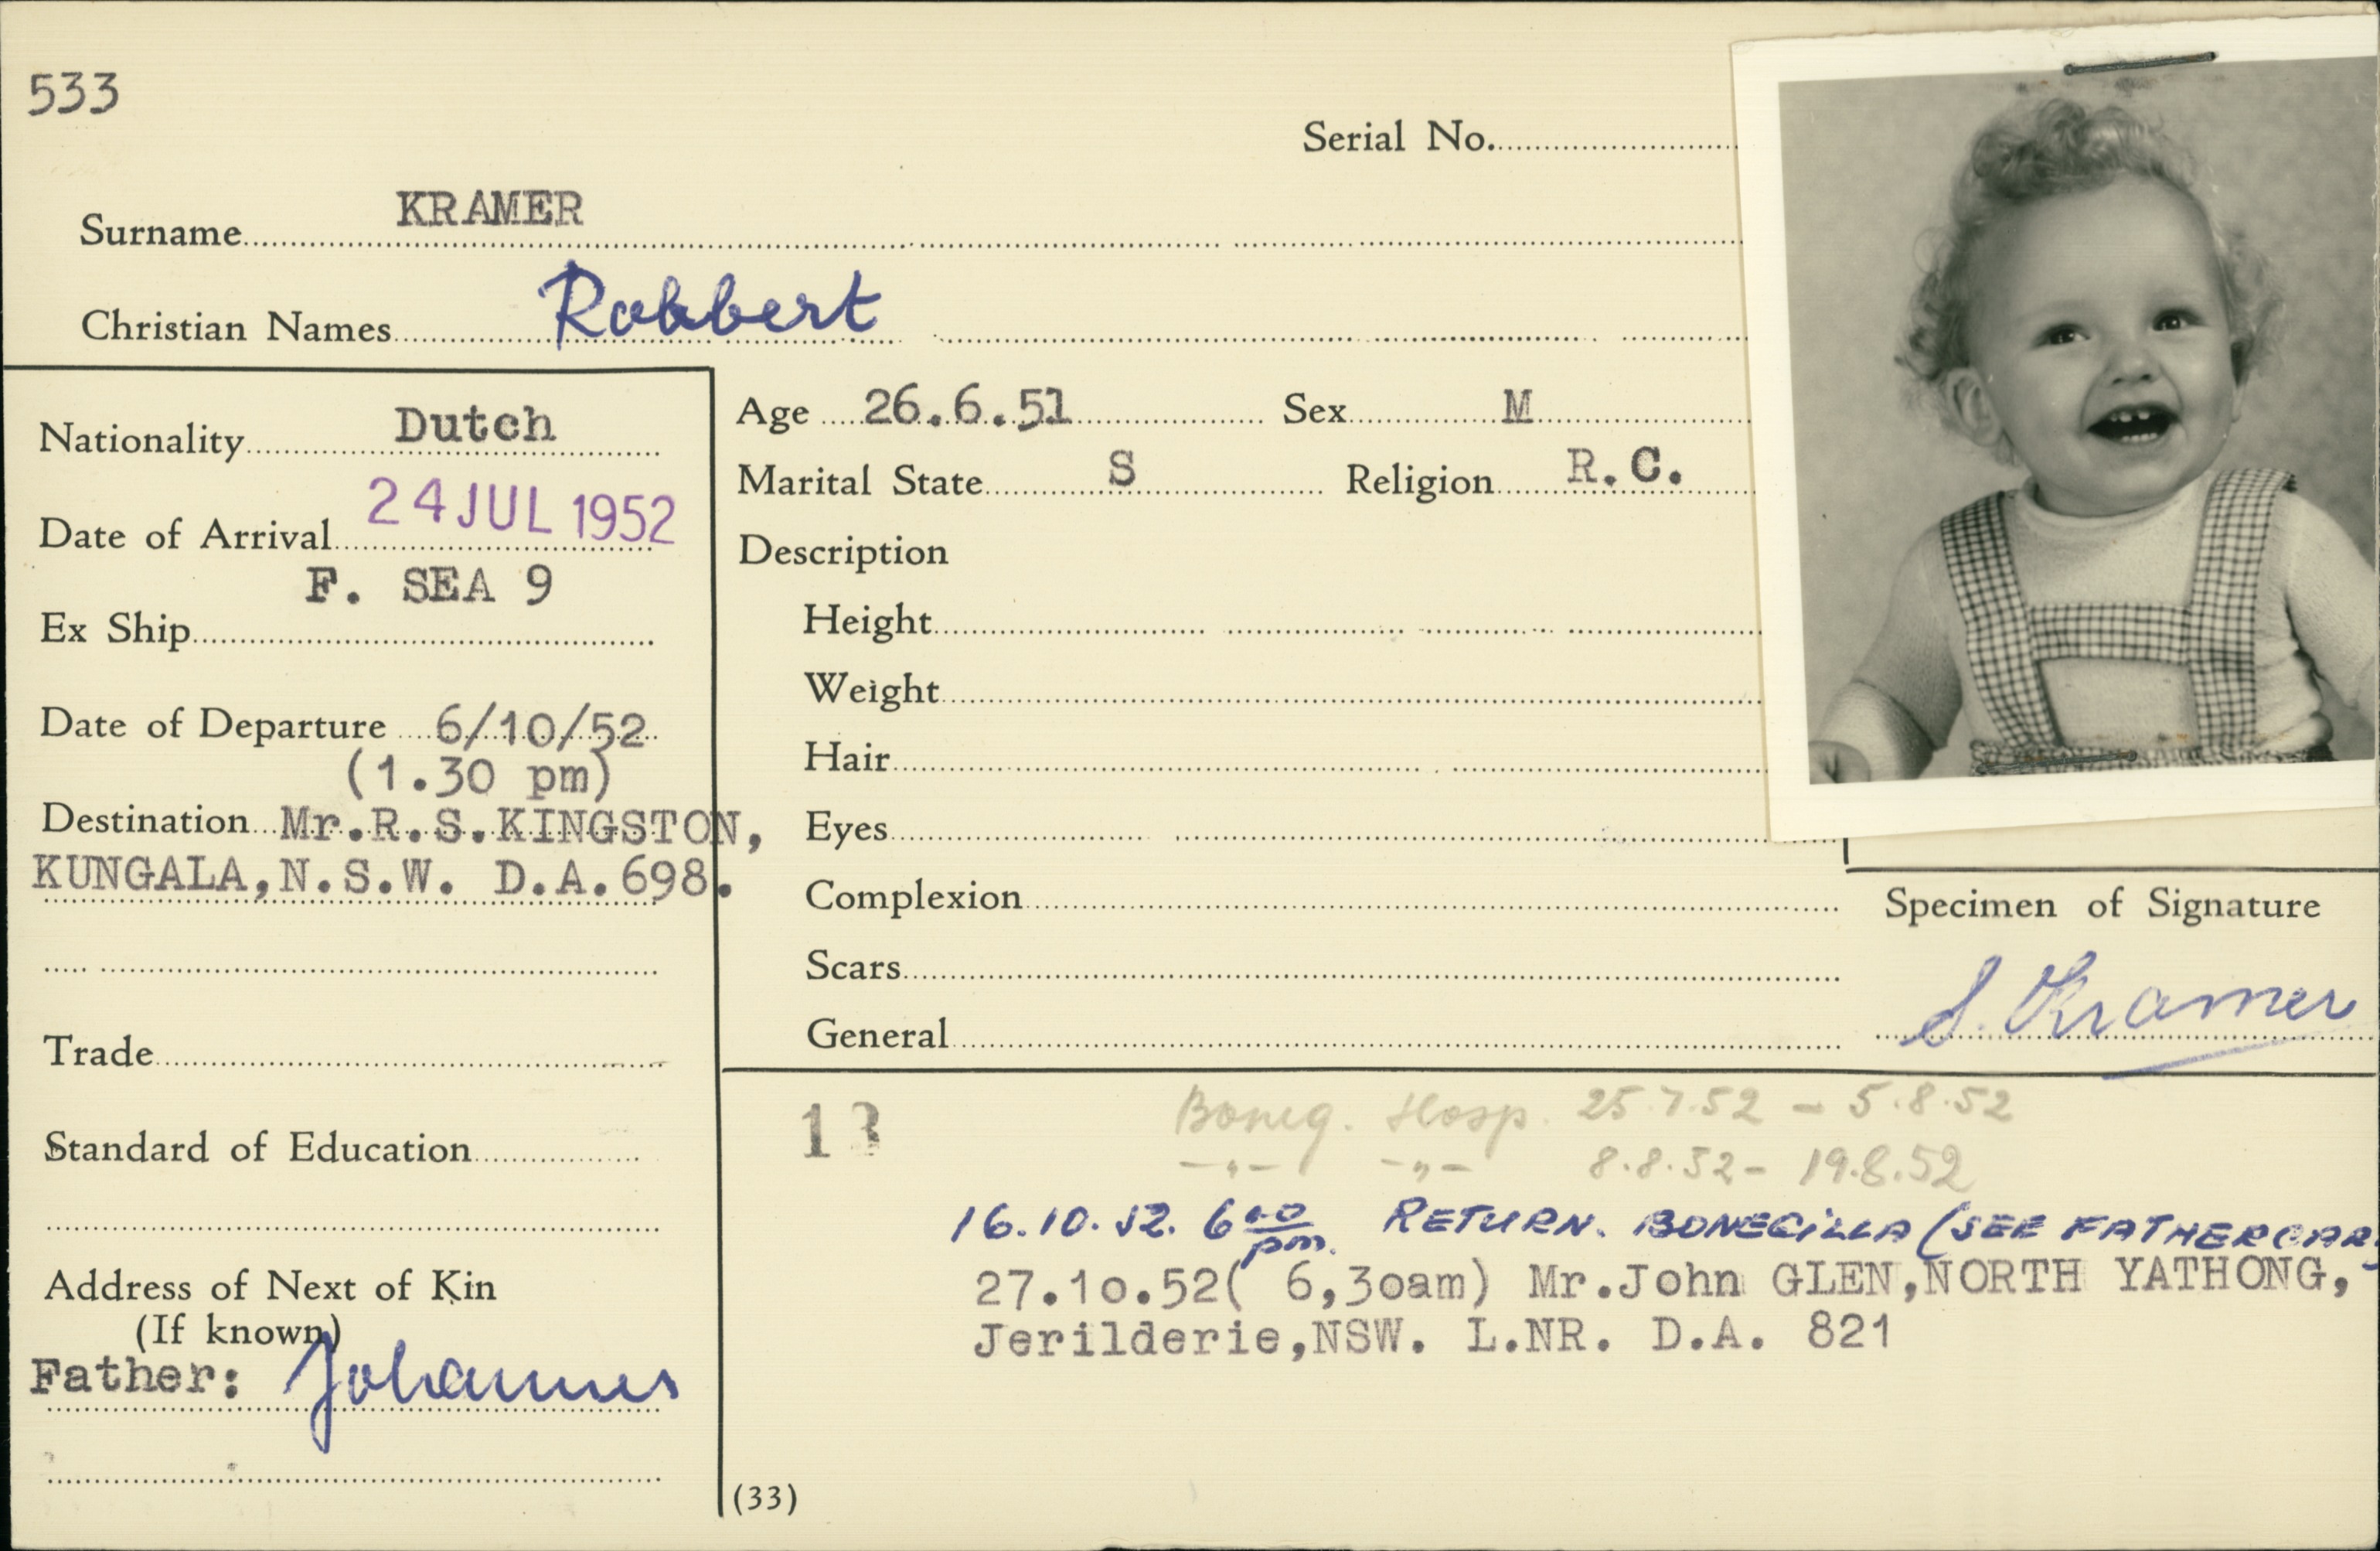 533
Serial No.
Surname KRAMER
Christian Names Robbert
Nationality Dutch
Date of Arrival 24 JUL 1952
F. SEA 9
Ex Ship
Date of Departure 6/10/52
(1.30 pm)
Destination Mr.R.S.KINGSTON,
KUNGALA,N.S.W. D.A.698.
Trade
Standard of Education
Address of Next of Kin
(If known)
Father: Johannes
Age 26.6.51 Sex M
Marital State S Religion R.C.
Description
Height
Weight
Hair
Eyes
Complexion
Scars
General
Specimen of Signature
S. Kramer
13 Boneg. Hosp. 25.7.52 - 5.8.52
-"- -"- 8.8.52 - 19.8.52
16.10.52. 6 00 pm. RETURN. BONEGILLA (SEE FATHER CAR
27.1o.52( 6,3oam) Mr.John GLEN,NORTH YATHONG,
Jerilderie,NSW. L.NR. D.A. 821
(33)